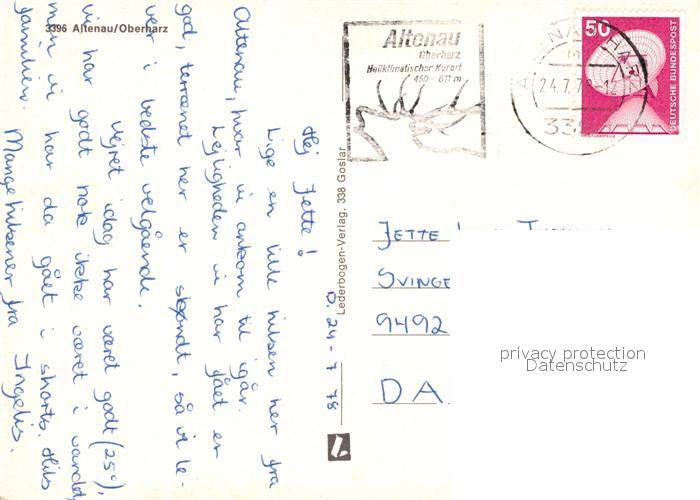 3396 Altenau/Oberharz
D. 24-7 78
Hej Jette!
Lige en lille hilsen her fra
Altenau, hvor vi ankom til igår.
Lejligheden vi har fået er
god, terrænet her er skøndt, så vi le-
ver i bedste velgående.
Vejret idag har været godt (25°),
vi har godt nok ikke været i vandet,
men vi har da gået i shorts. Hils
familien.
Mange hilsener fra Ingelis.
Lederbogen-Verlag, 338 Goslar
Altenau
Oberharz
Heilklimatischer Kurort
450-811 m
24.7.78-12
338
50
DEUTSCHE BUNDESPOST
JETTE
SVINGE
9492
DA
privacy protection
Datenschutz